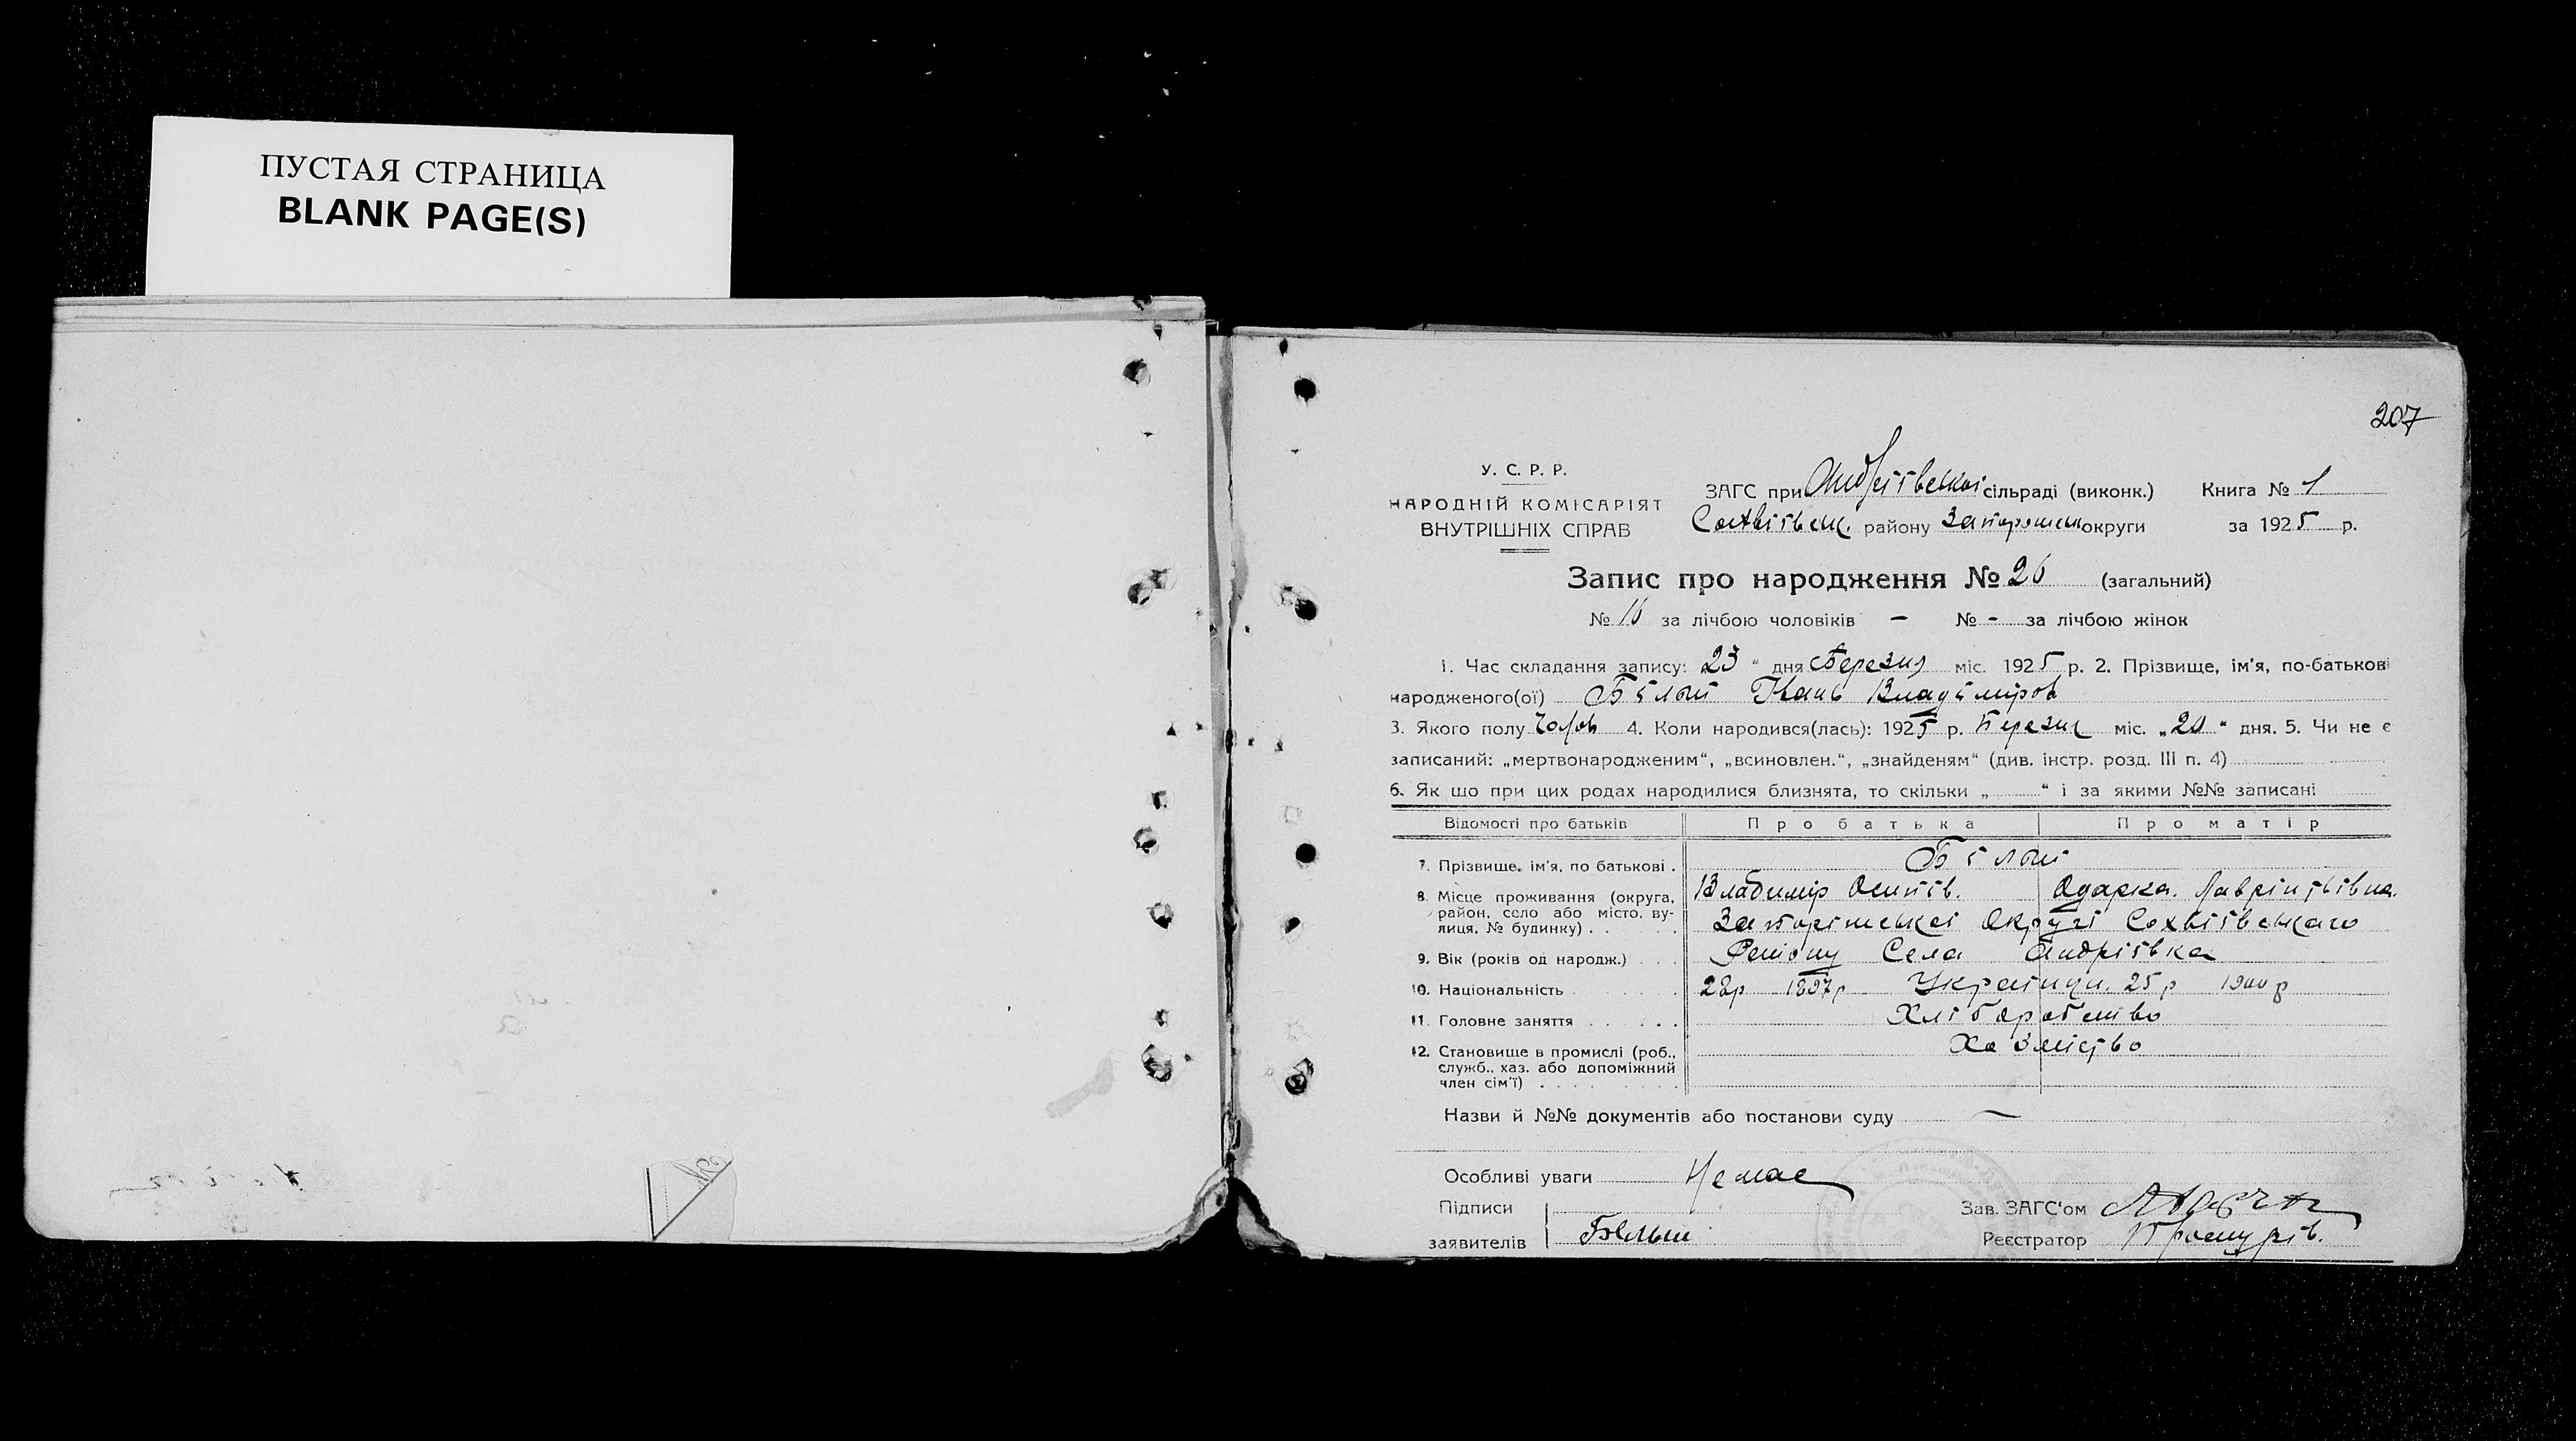 ПУСТАЯ СТРАНИЦА
BLANK PAGE(S)
207
У. С. Р. Р.
НАРОДНІЙ КОМІСАРІЯТ
ВНУТРІШНІХ СПРАВ
ЗАГС при Андріївської сільраді (виконк.) Книга № 1
району округи за 1925 р.
Запис про народження № 26 (загальний)
№ 16 за лічбою чоловіків — № - за лічбою жінок
1. Час складання запису: 23 " дня Березня міс. 1925 р. 2. Прізвище, ім'я, по-батькові
народженого(ої) Білый Іванъ Владиміров
3. Якого полу 4. Коли народився(лась): 1925 р. Березня міс. „20" дня. 5. Чи не є
записаний: „мертвонародженим", „всиновлен.", „знайденям" (див. інстр. розд. III п. 4)
6. Як що при цих родах народилися близнята, то скільки „ " і за якими №№ записані
Відомості про батьків Про батька Про матір
7. Прізвище, ім'я, по батькові . Білый
Владимір Осипів. Одарка.
8. Місце проживання (округа, район, село або місто, вулиця, № будинку) . .
Округі
Села Андріївка
9. Вік (років од народж.) . . .
10. Національність 28р 1897р Українци. 25р 1900р
11. Головне заняття . . . . . Хліборобство
12. Становище в промислі (роб., служб., хаз. або допоміжний член сім'ї) . . . . .
Назви й №№ документів або постанови суду —
Особливі уваги Немає
Підписи
Зав. ЗАГС'ом
заявителів Белый
Реєстратор